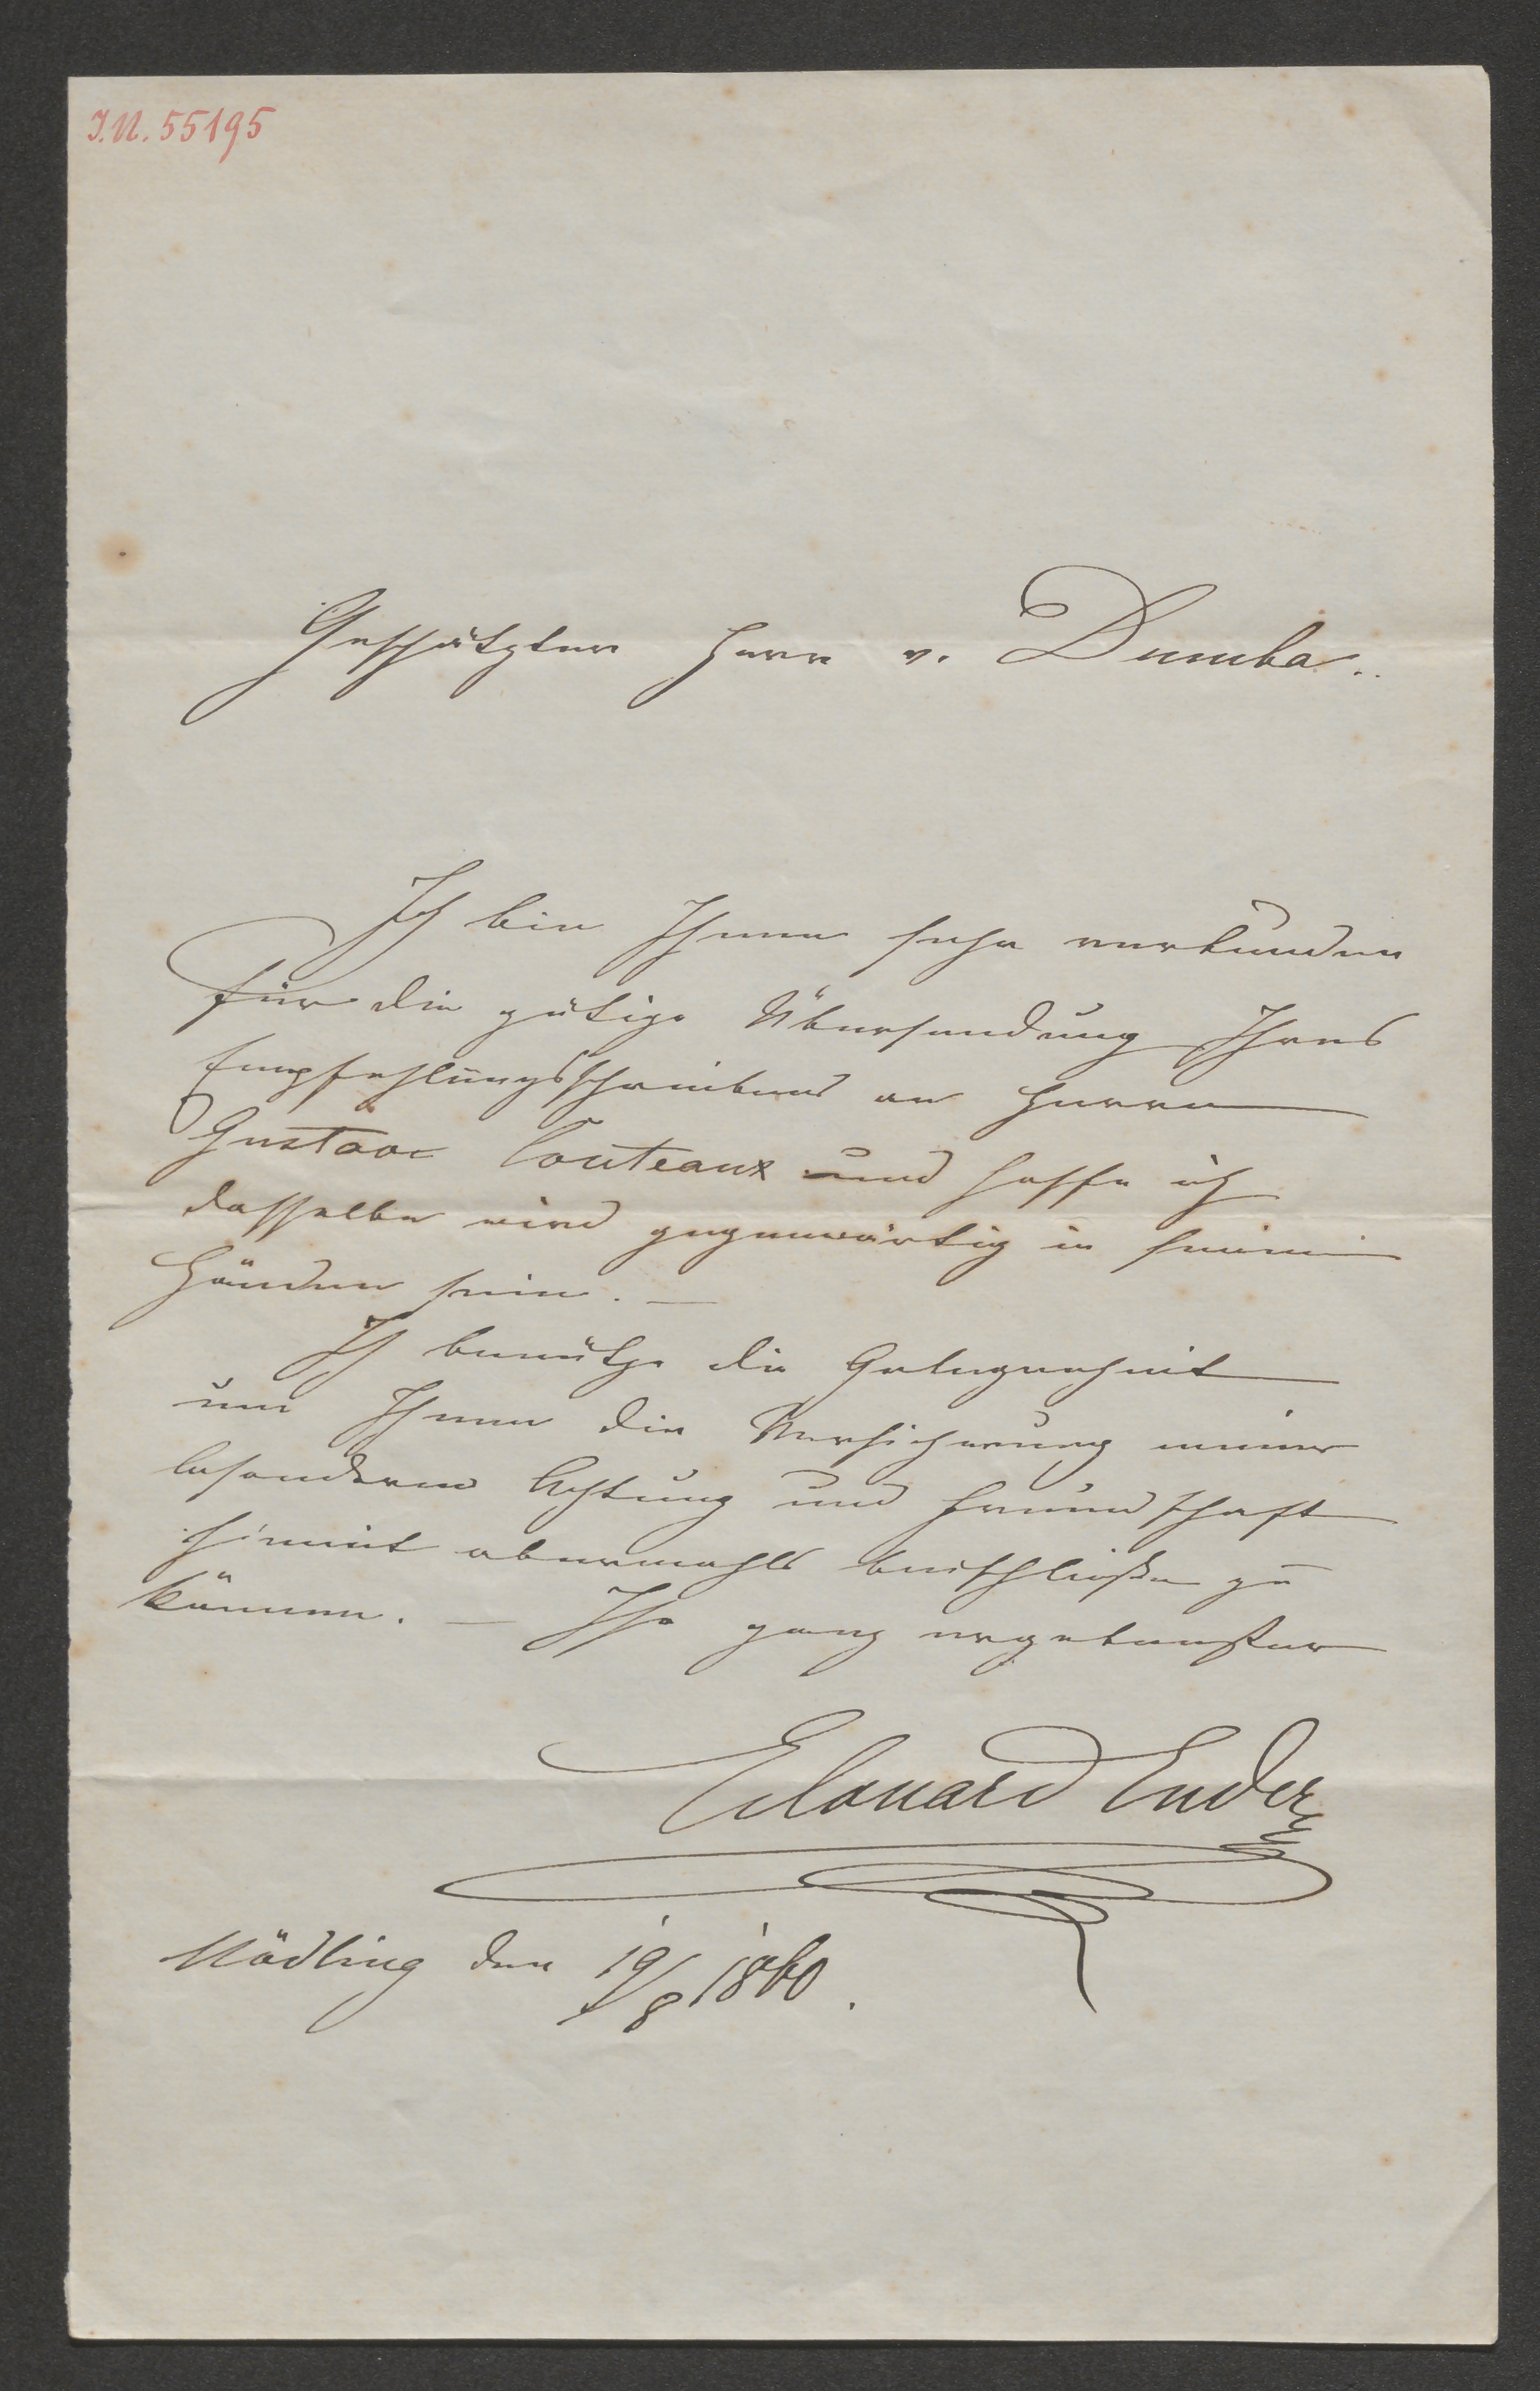 J.N. 55195
Geschätzter Herr v. Dumba..
Ich bin Ihnen sehr verbunden
für die gütige Übersendung Ihres
Empfehlungsschreibens an Herrn
Gustave Couteaux und hoffe ich
dasselbe wird gegenwärtig in seinen
Händen sein. —
Ich benütze die Gelegenheit
um Ihnen die Versicherung meiner
besonderen Achtung und Freundschaft
hiemit abermahls beischließen zu
können. — Ihr ganz ergebenster
Edouard Ender
Mödling den 19/8 1860.